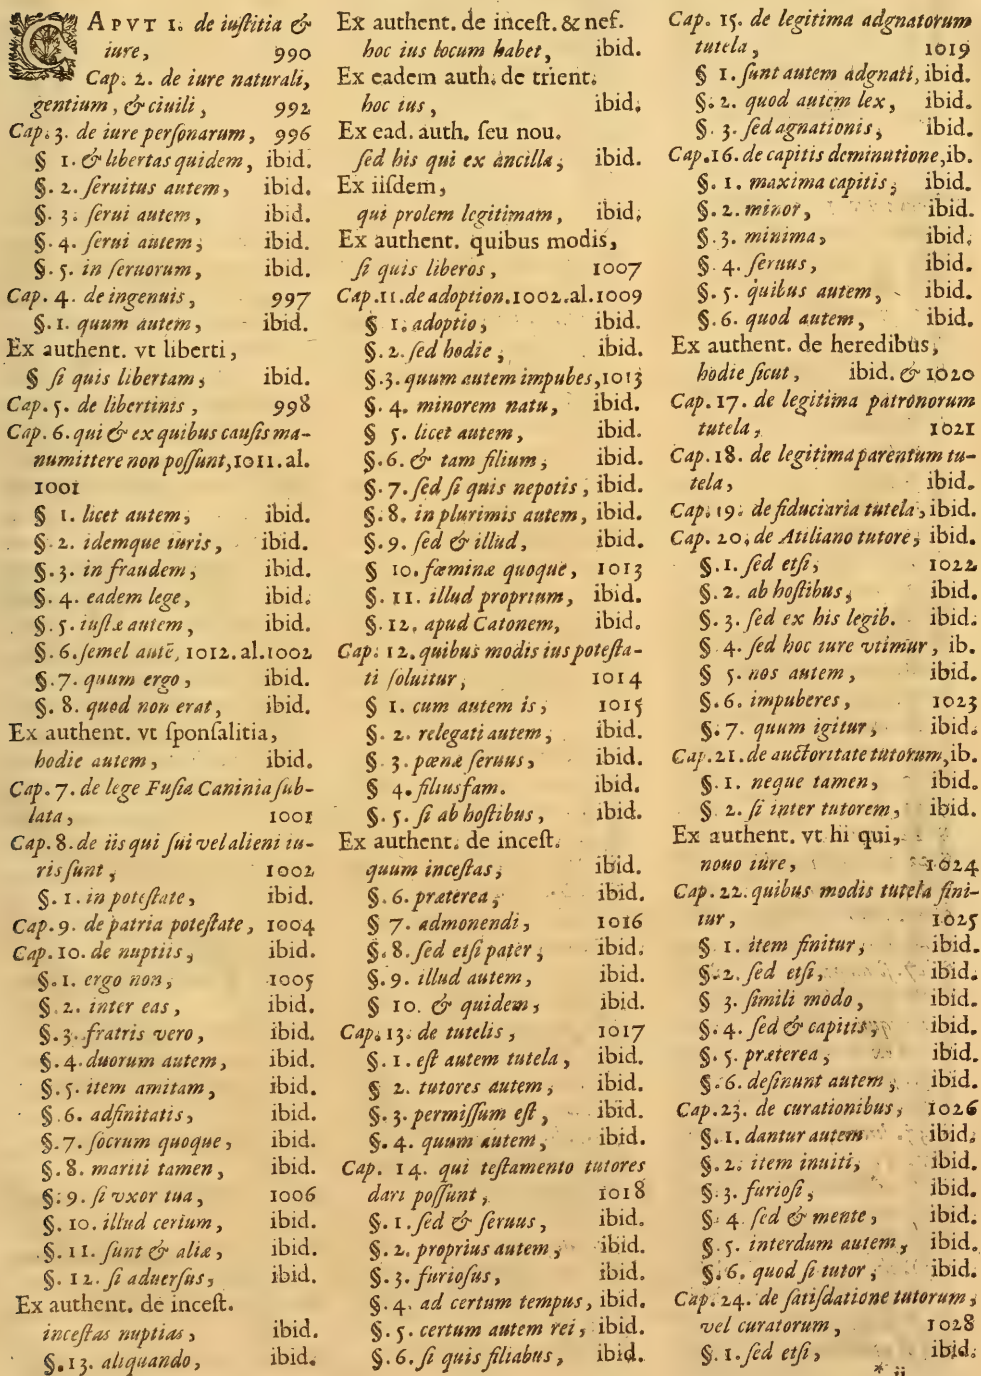 CAPVT 1. de iuſtitia &
iure, 990
Cap. 2. de iure naturali,
gentium, & ciuili, 992
Cap. 3. de iure perſonarum, 996
§ 1. & libertas quidem, ibid.
§. 2. ſeruitus autem, ibid.
§. 3. ſerui autem, ibid.
§. 4. ſerui autem, ibid.
§. 5. in ſeruorum, ibid.
Cap. 4. de ingenuis, 997
§. 1. quum autem, ibid.
Ex authent. vt liberti,
§ ſi quis libertam, ibid.
Cap. 5. de libertinis, 998
Cap. 6. qui & ex quibus cauſis ma-
numittere non poſſunt, 1011. al.
1001
§ 1. licet autem, ibid.
§. 2. idemque iuris, ibid.
§. 3. in fraudem, ibid.
§. 4. eadem lege, ibid.
§. 5. iuſtæ autem, ibid.
§. 6. ſemel autē, 1012. al. 1002
§. 7. quum ergo, ibid.
§. 8. quod non erat, ibid.
Ex authent. vt ſponſalitia,
hodie autem, ibid.
Cap. 7. de lege Fuſia Caninia ſub-
lata, 1001
Cap. 8. de iis qui ſui vel alieni iu-
ris ſunt, 1002
§. 1. in poteſtate, ibid.
Cap. 9. de patria poteſtate, 1004
Cap. 10. de nuptiis, ibid.
§. 1. ergo non, 1005
§. 2. inter eas, ibid.
§. 3. fratris vero, ibid.
§. 4. duorum autem, ibid.
§. 5. item amitam, ibid.
§. 6. adfinitatis, ibid.
§. 7. ſocrum quoque, ibid.
§. 8. mariti tamen, ibid.
§. 9. ſi vxor tua, 1006
§. 10. illud certum, ibid.
§. 11. ſunt & aliæ, ibid.
§. 12. ſi aduerſus, ibid.
Ex authent. de inceſt.
inceſtas nuptias, ibid.
§. 13. aliquando, ibid.
Ex authent. de inceſt. & nef.
hoc ius locum habet, ibid.
Ex eadem auth. de trient.
hoc ius, ibid.
Ex ead. auth. ſeu nou.
ſed his qui ex ancilla, ibid.
Ex iiſdem,
qui prolem legitimam, ibid.
Ex authent. quibus modis,
ſi quis liberos, 1007
Cap. 11. de adoption. 1002. al. 1009
§ 1. adoptio, ibid.
§. 2. ſed hodie, ibid.
§. 3. quum autem impubes, 1013
§. 4. minorem natu, ibid.
§ 5. licet autem, ibid.
§. 6. & tam filium, ibid.
§. 7. ſed ſi quis nepotis, ibid.
§. 8. in plurimis autem, ibid.
§. 9. ſed & illud, ibid.
§ 10. fœminæ quoque, 1013
§. 11. illud proprium, ibid.
§. 12. apud Catonem, ibid.
Cap. 12. quibus modis ius poteſta-
ti ſoluitur, 1014
§ 1. cum autem is, 1015
§. 2. relegati autem, ibid.
§ 3. pœnæ ſeruus, ibid.
§ 4. filiusfam. ibid.
§. 5. ſi ab hoſtibus, ibid.
Ex authent. de inceſt.
quum inceſtas, ibid.
§. 6. præterea, ibid.
§ 7. admonendi, 1016
§. 8. ſed etſi pater, ibid.
§. 9. illud autem, ibid.
§ 10. & quidem, ibid.
Cap. 13. de tutelis, 1017
§. 1. eſt autem tutela, ibid.
§ 2. tutores autem, ibid.
§. 3. permiſſum eſt, ibid.
§. 4. quum autem, ibid.
Cap. 14. qui teſtamento tutores
dari poſſunt, 1018
§. 1. ſed & ſeruus, ibid.
§. 2. proprius autem, ibid.
§. 3. furioſus, ibid.
§. 4. ad certum tempus, ibid.
§. 5. certum autem rei, ibid.
§. 6. ſi quis filiabus, ibid.
Cap. 15. de legitima adgnatorum
tutela, 1019
§ 1. ſunt autem adgnati, ibid.
§. 2. quod autem lex, ibid.
§. 3. ſed agnationis, ibid.
Cap. 16. de capitis deminutione, ib.
§. 1. maxima capitis, ibid.
§. 2. minor, ibid.
§. 3. minima, ibid.
§. 4. ſeruus, ibid.
§. 5. quibus autem, ibid.
§. 6. quod autem, ibid.
Ex authent. de heredibus,
hodie ſicut, ibid. & 1020
Cap. 17. de legitima patronorum
tutela, 1021
Cap. 18. de legitima parentum tu-
tela, ibid.
Cap. 19. de fiduciaria tutela, ibid.
Cap. 20. de Atiliano tutore, ibid.
§. 1. ſed etſi, 1022
§. 2. ab hoſtibus, ibid.
§. 3. ſed ex his legib. ibid.
§ 4. ſed hoc iure vtimur, ib.
§ 5. nos autem, ibid.
§. 6. impuberes, 1023
§. 7. quum igitur, ibid.
Cap. 21. de auctoritate tutorum, ib.
§. 1. neque tamen, ibid.
§. 2. ſi inter tutorem, ibid.
Ex authent. vt hi qui,
nouo iure, 1024
Cap. 22. quibus modis tutela fini-
tur, 1025
§ 1. item finitur, ibid.
§. 2. ſed etſi, ibid.
§ 3. ſimili modo, ibid.
§. 4. ſed & capitis, ibid.
§. 5. præterea, ibid.
§. 6. deſinunt autem, ibid.
Cap. 23. de curationibus, 1026
§. 1. dantur autem ibid.
§. 2. item inuiti, ibid.
§. 3. furioſi, ibid.
§. 4. ſed & mente, ibid.
§. 5. interdum autem, ibid.
§. 6. quod ſi tutor, ibid.
Cap. 24. de ſatiſdatione tutorum,
vel curatorum, 1028
§. 1. ſed etſi, ibid.
* ij